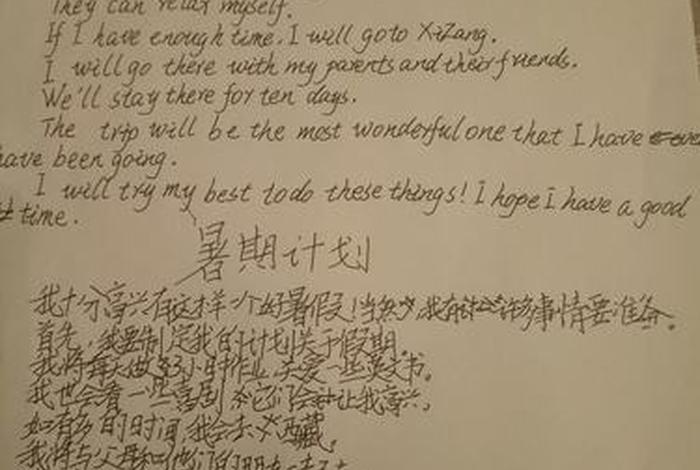 They can relax myself.
If I have enough time. I will go to XiZang.
I will go there with my parents and their friends.
We'll stay there for ten days.
The trip will be the most wonderful one that I have
have been going.
I will try my best to do these things! I hope I have a good
time.
暑期计划
我十分高兴有这样一个好暑假!当然,我有许多事情要准备。
首先,我要制定我的计划关于假期。
我将每天做3小时作业,一些英文书。
我也会看一些喜剧,它们会让我高兴。
如有多的时间,我会去西藏。
我将与父母和他们的朋友一起去